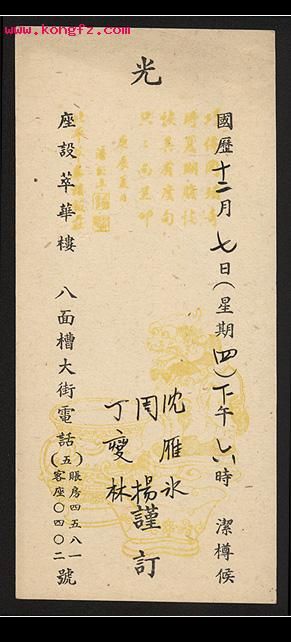 www.kongfz.com
國歷十二月七日(星期四)下午六時　潔樽候
光
沈雁冰
周揚
丁燮林
謹訂
座設萃華樓　八面槽大街電話(五)賬房四五八一
客座〇四〇二號